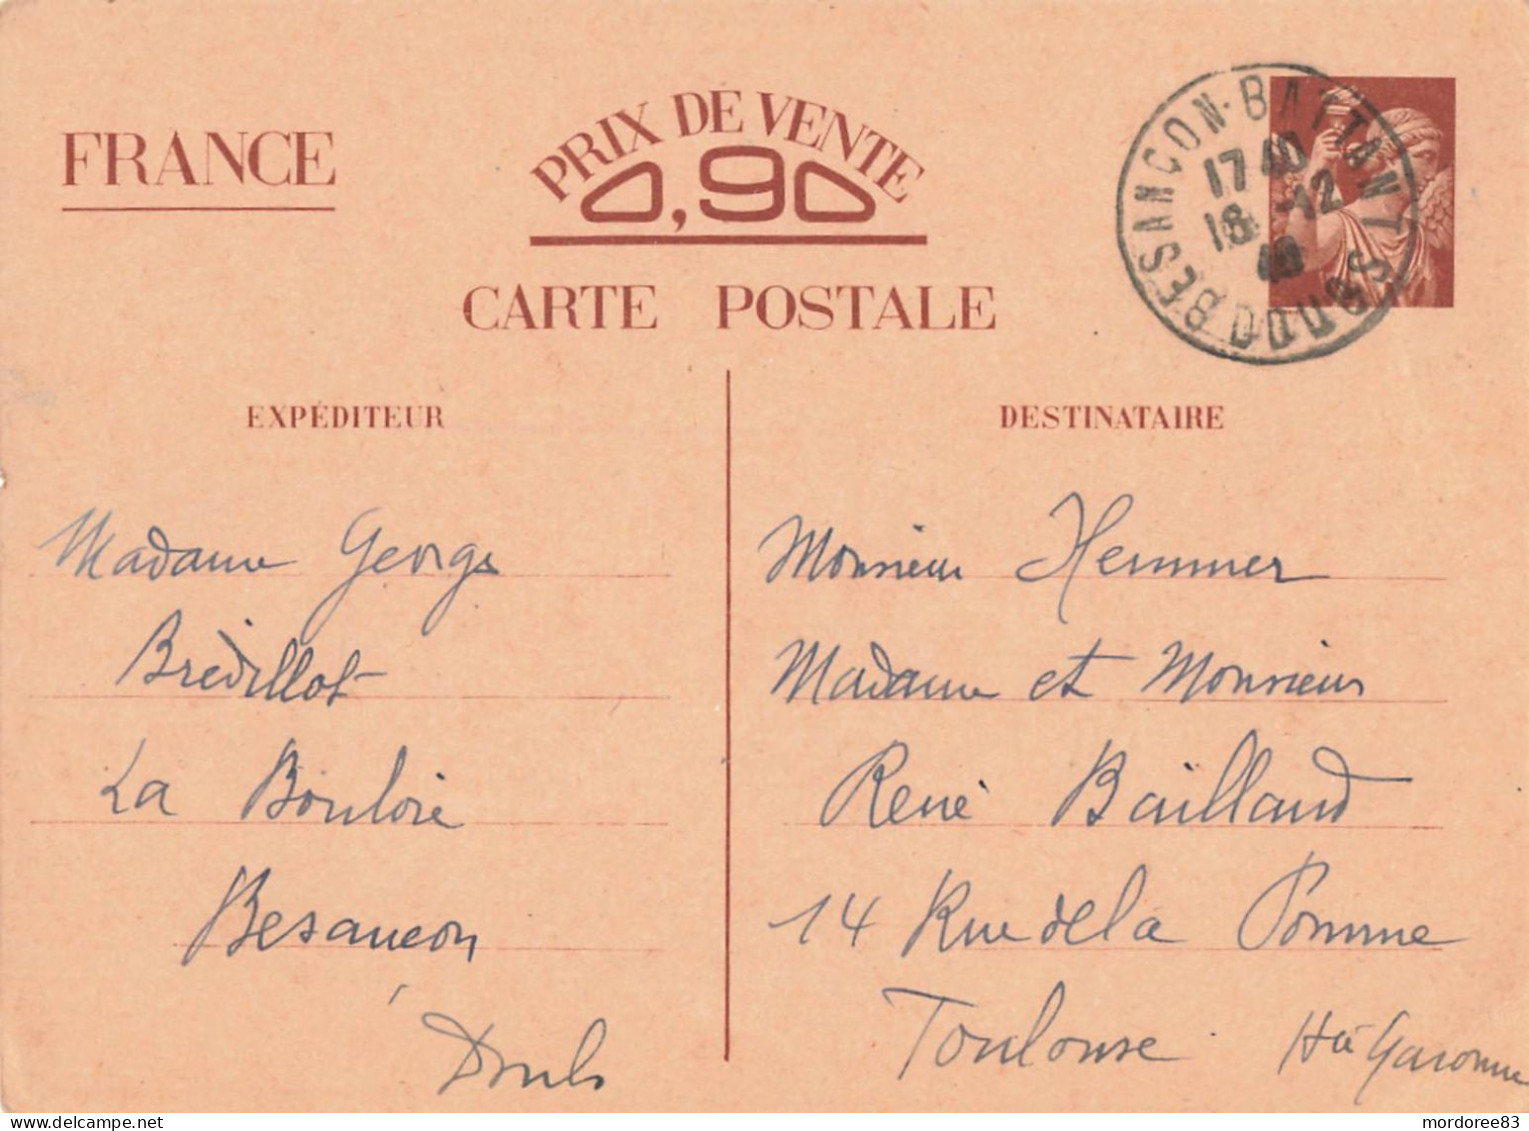 FRANCE
PRIX DE VENTE
0,90
CARTE POSTALE
BESANÇON-BATTANT DOUBS
17 40
18 -12
40
EXPÉDITEUR
Madame George
Bredillot
La Bouloie
Besançon
Doubs
DESTINATAIRE
Monsieur Hemmer
Madame et Monsieur
René Baillaud
14 Rue de la Pomme
Toulouse Hte Garonne
mordoree83